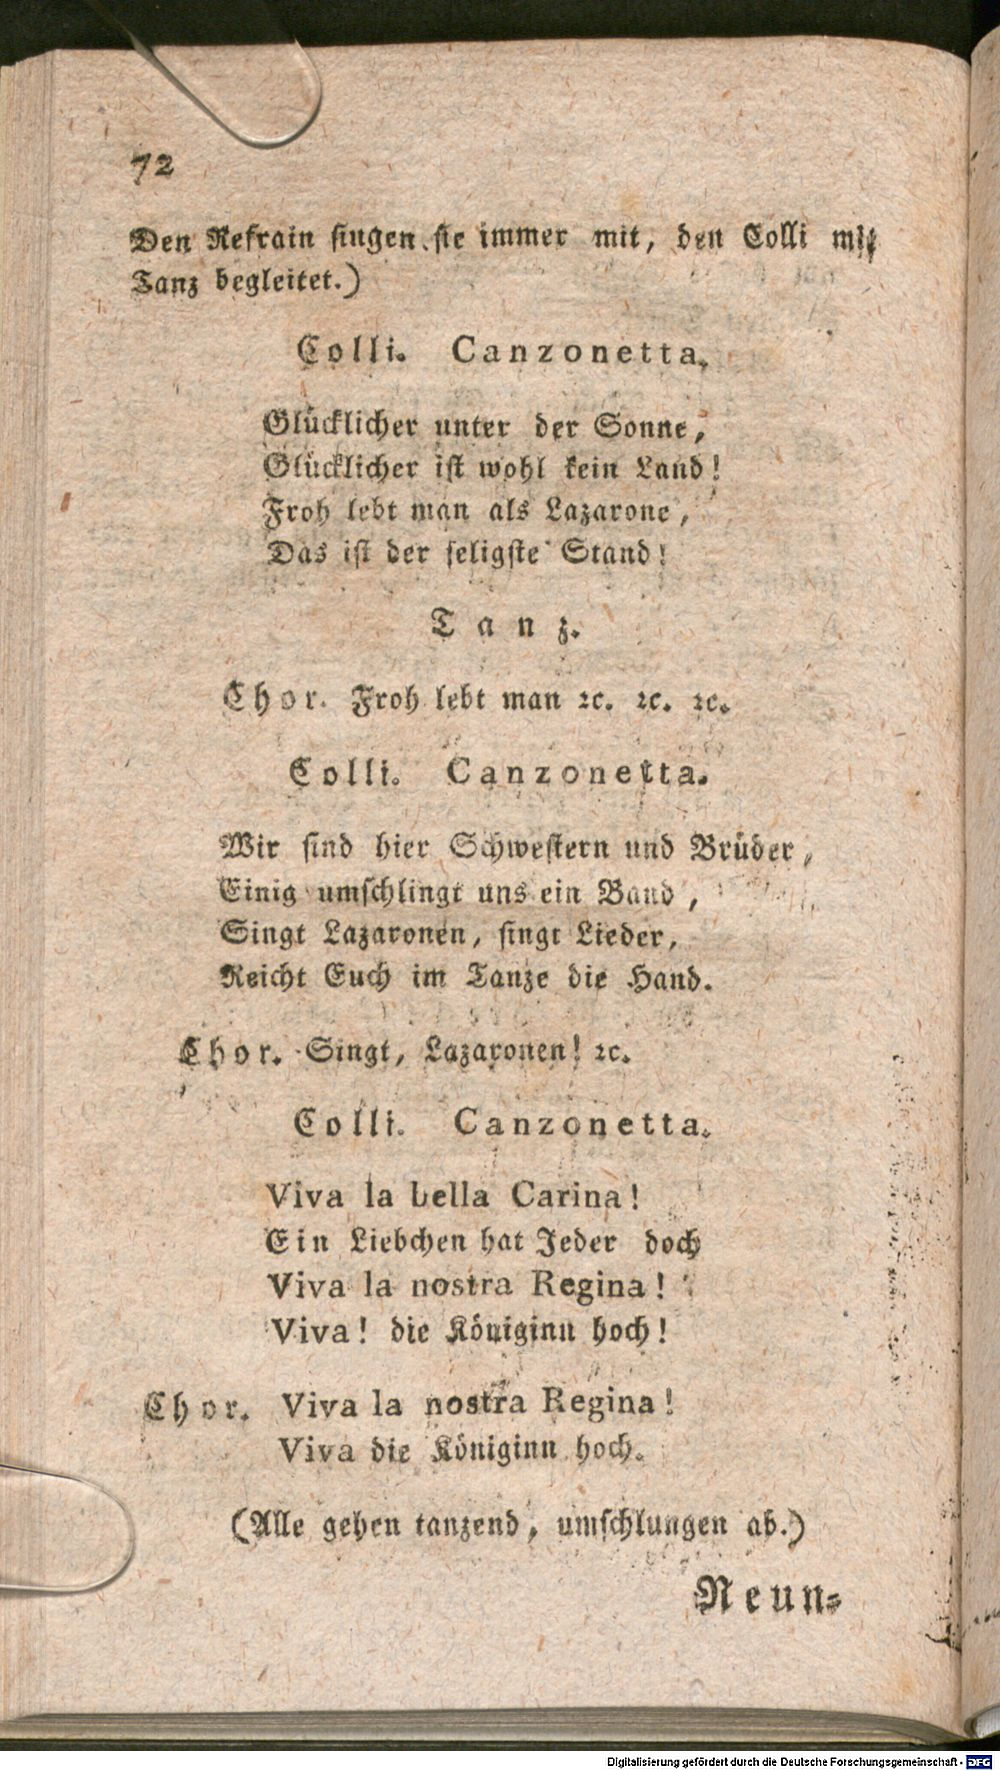 72
Den Refrain singen sie immer mit, den Colli mit
Tanz begleitet.)
Colli. Canzonetta.
Glücklicher unter der Sonne,
Glücklicher ist wohl kein Land!
Froh lebt man als Lazarone,
Das ist der seligste Stand!
Tanz.
Chor. Froh lebt man ꝛc. ꝛc. ꝛc.
Colli. Canzonetta.
Wir sind hier Schwestern und Brüder,
Einig umschlingt uns ein Band,
Singt Lazaronen, singt Lieder,
Reicht Euch im Tanze die Hand.
Chor. Singt, Lazaronen! ꝛc.
Colli. Canzonetta.
Viva la bella Carina!
Ein Liebchen hat Jeder doch
Viva la nostra Regina!
Viva! die Königinn hoch!
Chor. Viva la nostra Regina!
Viva die Königinn hoch.
(Alle gehen tanzend, umschlungen ab.)
Neun-
Digitalisierung gefördert durch die Deutsche Forschungsgemeinschaft - DFG